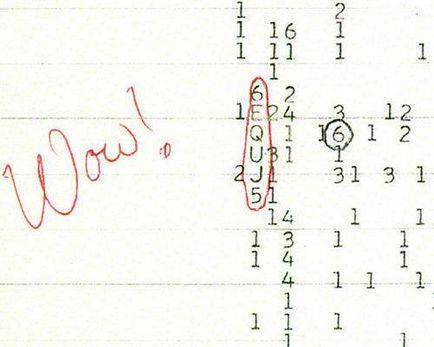 1 2
1 16 1
1 11 1 1
1
6 2
1 E24 3 12
Q 1 16 1 2
Wow!
U31 1
2 J1 31 3 1
51
14 1 1
1 3 1 1
1 4 1
4 1 1 1
1
1 1 1
1 1